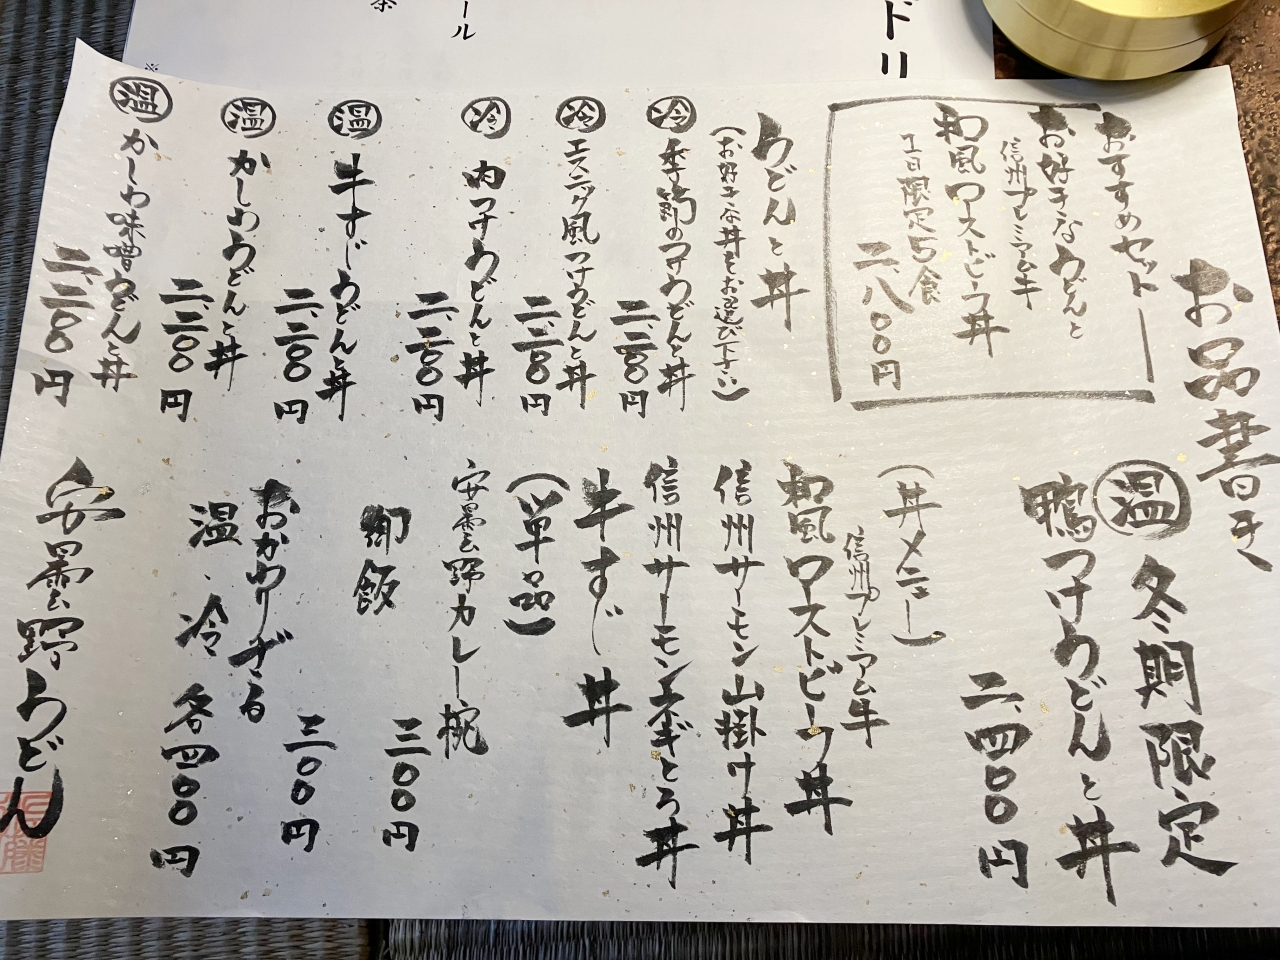 お品書き
おすすめセット
お好きなうどんと
信州プレミアム牛
和風ローストビーフ丼
1日限定5食
二、八〇〇円
うどんと丼
(お好きな丼をお選び下さい)
冷
季節のつけうどんと丼
二、二〇〇円
冷
エスニック風つけうどんと丼
二、二〇〇円
冷
肉つけうどんと丼
二、二〇〇円
温
牛すじうどんと丼
二、二〇〇円
温
かしわうどんと丼
二、二〇〇円
温
かしわ味噌うどんと丼
二、二〇〇円
温 冬期限定
鴨つけうどんと丼
二、四〇〇円
(丼メニュー)
信州プレミアム牛
和風ローストビーフ丼
信州サーモン山掛け丼
信州サーモンネギとろ丼
牛すじ丼
(単品)
安曇野カレー椀
三〇〇円
御飯
三〇〇円
おかわりざる
温、冷 各四〇〇円
安曇野うどん
ドリ
ール
茶
※